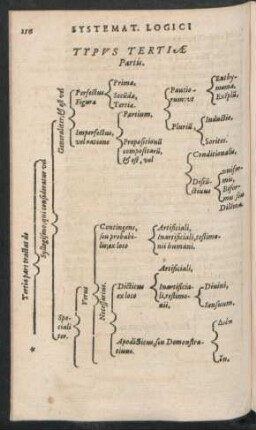 SYSTEMAT. LOGICI
TYPVS TERTIÆ
Partis.
Tertia pars tractat de
Syllogismo, qui consideratur vel
Generaliter, & est vel
Perfectus
Figura
Prima,
Secũda,
Tertia.
Imperfectus,
vel ratione
Partium,
Paucio-
rum: vt
Enthy-
mema,
Pluriũ,
Inductio.
Sorites.
Propositionũ
compositarũ,
& est, vel
Conditionalis,
Disiũ-
Spe-
ciali-
ter.
Verus
Necessarius,
Contingens,
seu probabi-
lis; ex loco
Artificiali,
Inartificiali, testimo-
nii humani,
Dicticus
ex loco
Artificiali,
Inartificia-
li, testimo-
nii,
Divini,
Sensuum.
Apodicticus, seu Demonstra-
tivus.